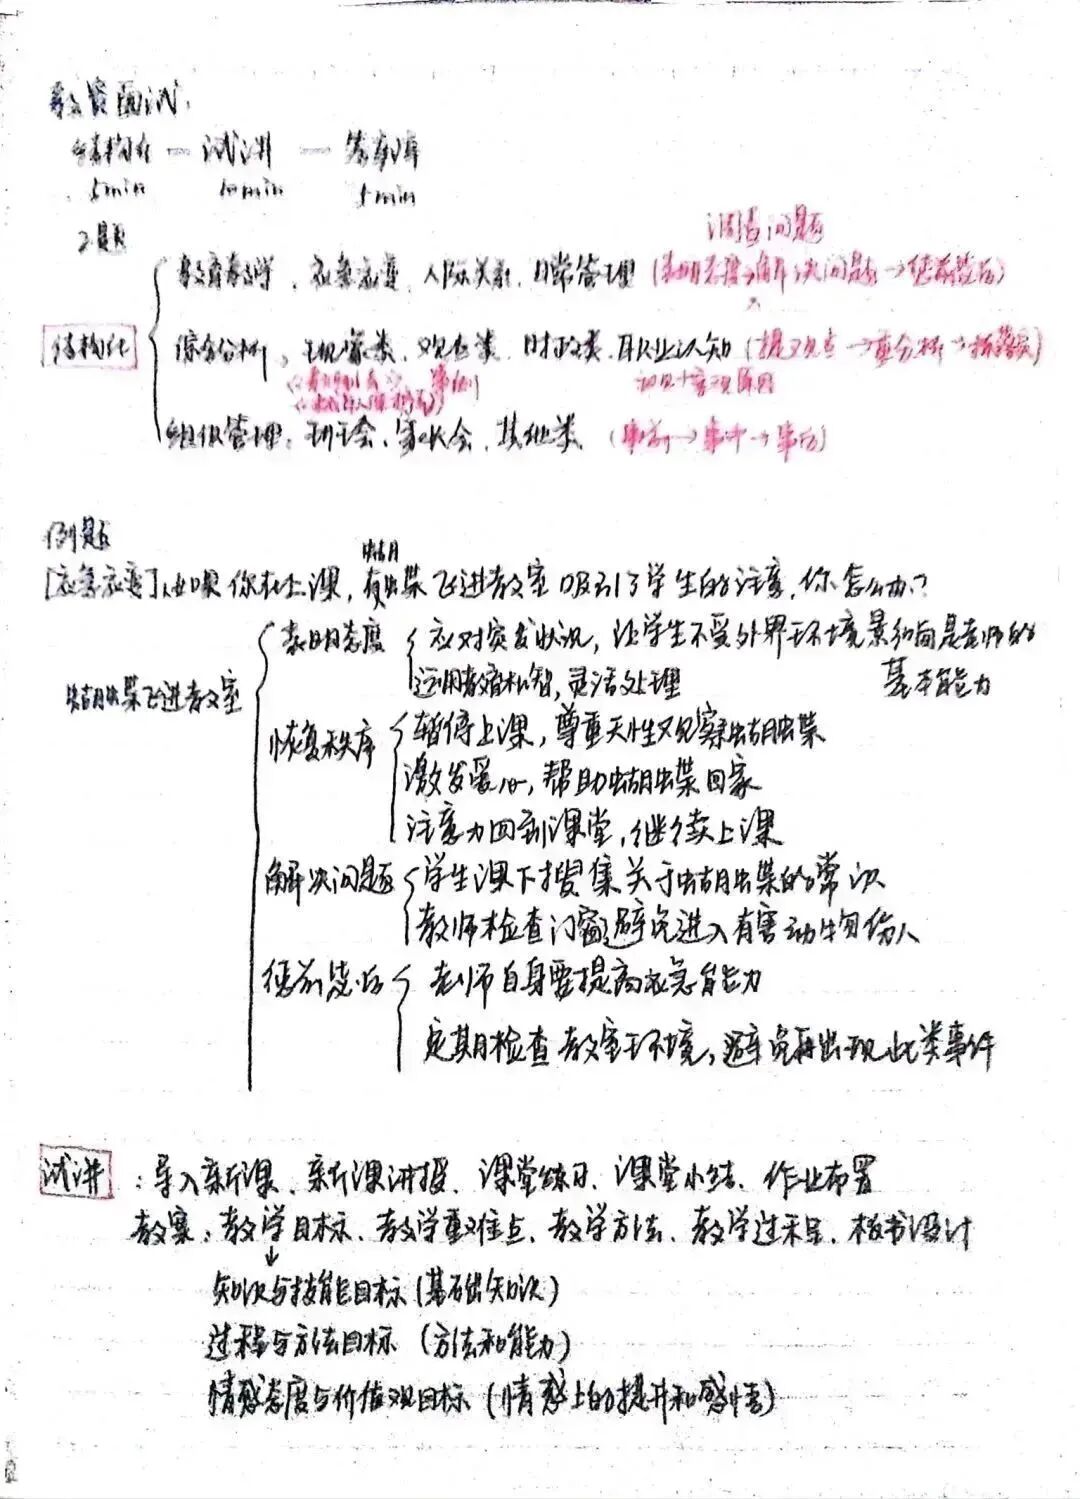 教资面试:
结构化 — 试讲 — 答辩
5min 10min 5min
2题
调查问题
教育教学、应急应变、人际关系、日常管理(表明态度→解决问题→惩前毖后)
结构化
综合分析:现象类、观点类、时政类、职业认知(提观点→重分析→抓落实)
组织管理:班会、家长会、其他类(事前→事中→事后)
例题
[应急应变]如果你在上课,有蝴蝶飞进教室吸引了学生的注意,你怎么办?
表明态度 应对突发状况,让学生不受外界环境影响是老师的基本能力
运用教育机智,灵活处理
蝴蝶飞进教室
恢复秩序 暂停上课,尊重天性观察蝴蝶
激发爱心,帮助蝴蝶回家
注意力回到课堂,继续上课
解决问题 学生课下搜集关于蝴蝶的常识
教师检查门窗避免进入有害动物伤人
惩前毖后 老师自身要提高应急能力
定期检查教室环境,避免再出现此类事件
试讲:导入新课、新课讲授、课堂练习、课堂小结、作业布置
教案:教学目标、教学重难点、教学方法、教学过程、板书设计
↓
知识与技能目标(基础知识)
过程与方法目标(方法和能力)
情感态度与价值观目标(情感上的提升和感悟)